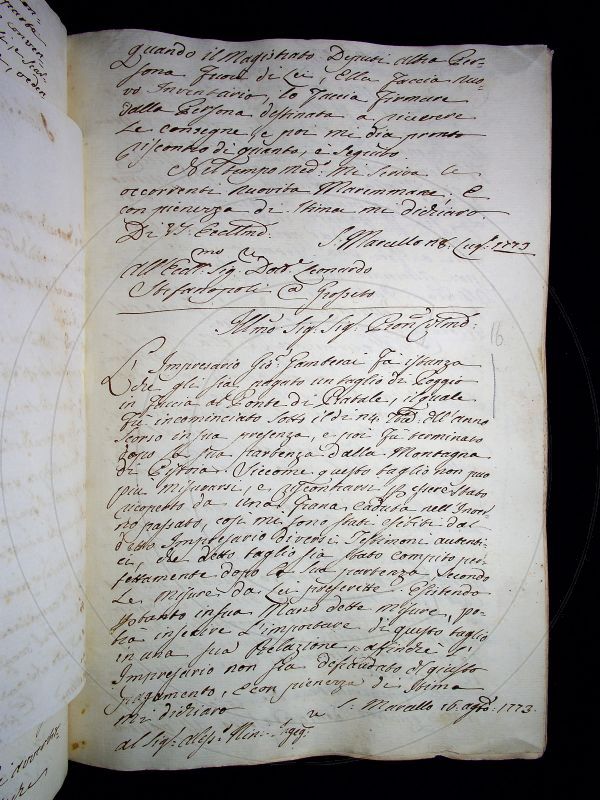 Quando il Magistrato Deputi altra Per-
sona fuori di Lei, Ella faccia nuo-
vo Inventario, lo faccia firmare
dalla Persona destinata a ricevere
le consegne, e poi mi dia pronto
riscontro di quanto, è seguito
Nel tempo med:º mi scriva le
occorrenti nuovità Maremmane, e
con pienezza di stima mi dichiaro
Di V.S. Eccellma:
S. Marcello 18. Lug:º 1773
all'Ecc:mo Sig:re Dott:re Leonardo
Stefanopoli @ Grosseto
Illmo Sig:e Sig:e Pron: Colmo:
16.
L'Impresario Gio: Gamberai fa istanza
che gli sia pagato un taglio di Poggio
in faccia al Ponte di Piatale, il quale
fù incominciato sotto il dì 24. dell'anno
scorso in sua presenza, e poi fù terminato
dopo la sua partenza dalla Montagna
di Pistoia. Siccome questo taglio non può
più misurarsi, e riscontrarsi p essere stato
ricoperto da una frana caduta nell'Inver-
no passato, così mi sono stati esibiti dal
detto Impresario diversi Testimoni autenti-
ci, che detto taglio sia stato compito per-
fettamente dopo la sua partenza secondo
le misure da Lei prescritte. Esistendo
ptanto in sua Mano dette misure, po-
trà inserire l'importare di questo taglio
in una sua Relazione affinchè l'
Impresario non sia defraudato del giusto
pagamento, e con pienezza di stima
mi dichiaro
S. Marcello 16. agto: 1773.
al Sig:re Aless: